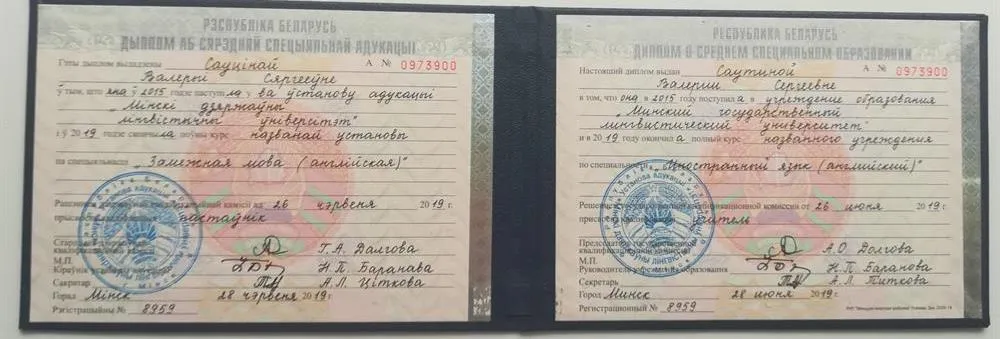 РЭСПУБЛІКА БЕЛАРУСЬ
ДЫПЛОМ АБ СЯРЭДНЯЙ СПЕЦЫЯЛЬНАЙ АДУКАЦЫІ
Гэты дыплом выдадзены Сауцінай А № 0973900
Валерыі Сяргееўне
ў тым, што яна ў 2015 годзе паступіла у ва ўстанову адукацыі
"Мінскі дзяржаўны
лінгвістычны ўніверсітэт"
і ў 2019 годзе скончыла поўны курс названай установы
па спецыяльнасці "Замежная мова (англійская)"
Рашэннем кваліфікацыйнай камісіі ад 26 чэрвеня 2019 г.
прысвоена настаўнік
Старшыня Г.А. Далгова
кваліфікацыйнай
М.П.
Кіраўнік Н.П. Баранава
Сакратар А.Л. Ціткова
Горад Мінск 28 чэрвеня 2019 г.
Рэгістрацыйны № 8959
РЕСПУБЛИКА БЕЛАРУСЬ
ДИПЛОМ О СРЕДНЕМ СПЕЦИАЛЬНОМ ОБРАЗОВАНИИ
Настоящий диплом выдан Саутиной А № 0973900
Валерии Сергеевне
в том, что она в 2015 году поступила в учреждение образования
"Минский государственный
лингвистический университет"
и в 2019 году окончила полный курс названного учреждения
по специальности "Иностранный язык (английский)"
Решением Государственной квалификационной комиссии от 26 июня 2019 г.
присвоена учитель
Председатель Государственной
квалификационной комиссии А.О. Долгова
М.П.
Руководитель учреждения образования Н.П. Баранова
Секретарь А.Л. Титкова
Город Минск 28 июня 2019 г.
Регистрационный № 8959